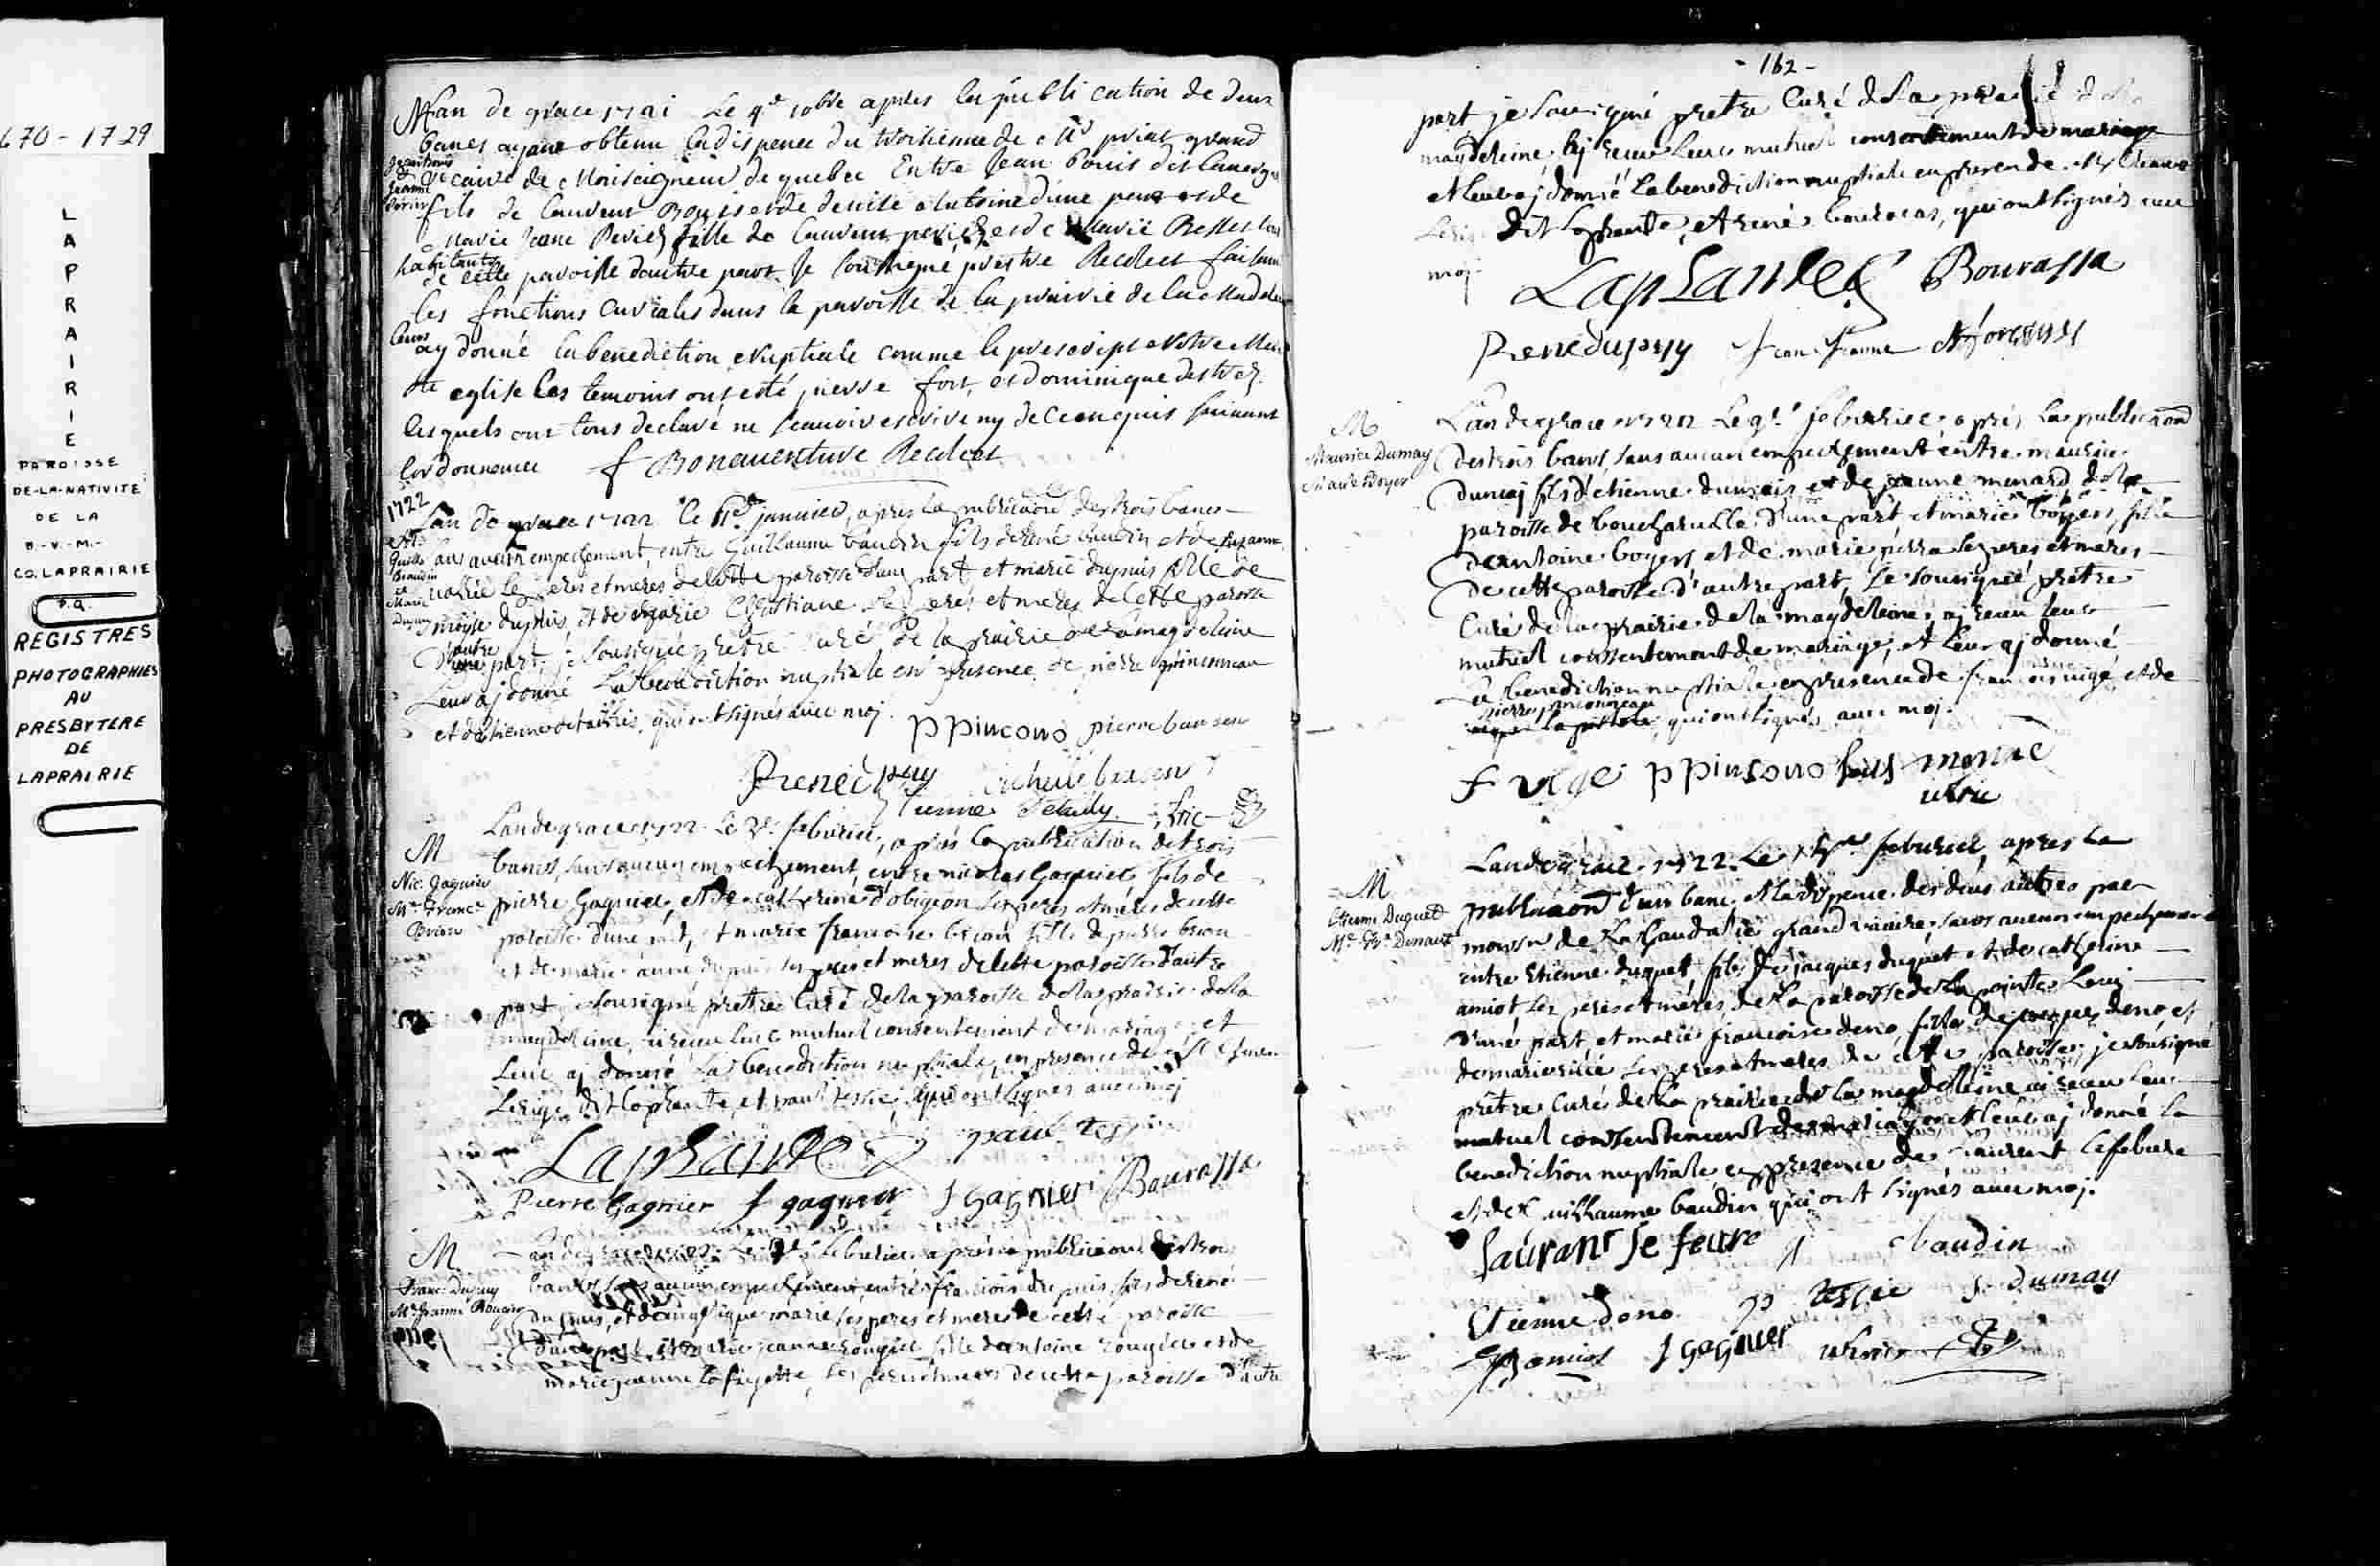 670-1729
LAPRAIRIE
PAROISSE
DE-LA-NATIVITÉ
DE LA
B.-V.-M.-
CO. LAPRAIRIE
P.Q.
REGISTRES
PHOTOGRAPHIES
AU
PRESBYTERE
DE
LAPRAIRIE
Lan de grace 1721 Le 9e 10bre apres la publication de deux
bancs ayant obtenu la dispence du troisieme de Mr priat grand
vicaire de Monseigneur de quebec Entre Jean
fils de laurent et de denise antoine d'une part et de
Marie Jeane Perier fille de laurent perier et de Marie
habitants
de cette paroisse dautre part Je soussigné prestre Recolect faisant
les fonctions curiales dans la paroisse de la prairie de la Madelene
leurs
ay donné la benediction Nuptiale comme le prescript Nostre Mere
Ste eglise Les temoins ont esté pierre fort, et dominique
lesquels ont tous declaré ne scauoir escrire ny de ce enquis suiuant
lordonnance f Bonauenture Recolect
1722
Lan de grace 1722 le janvier, apres la publication des trois bancs
sans aucun empechement, entre Guillaume baudin fils de rené baudin et de suzanne
Guill.
Beaudin
et
Marie
Dupuy
les peres et meres de cette paroisse d'une part et marie dupuis fille de
moyse dupuis, et de marie Christiane les peres et meres de cette paroisse
d'autre part, je sousigné pretre curé de la prairie de la magdeleine
Leur aj donné La benediction nuptiale en presence de pierre pinconneau
et d'etienne, qui ont signés avec moj.
P Pincono pierre
Rene dupuy
M
Nic. Gagnier
Me. France
Brion
Lan de grace 1722 Le febvrier, après la publication de trois
bancs, sans aucun empechement, entre nicolas Gagnier fils de
pierre Gagnier, et de catherine d'obigeon les peres et meres de cette
paroisse d'une part, et marie francoise brion fille de pierre brion
et de marie anne dupuis les peres et meres de cette paroisse d'autre
part je sousigné pretre curé de la paroisse de la prairie de la
magdeleine, ai receu leur mutuel consentement de mariage et
Leur aj donné La benediction nuptiale, en presence de
Lerige dit laplante, et paul tessié, qui ont signés avec moj
Laplante paul tessie
Pierre Gagnier J gagnier J Gagnier Bourassa
M
Franc. Dupuy
Me. Jeanne Rougier
Lan de grace 1722 Le febvrier apres la publication des trois
bancs sans aucun empechement entre francois dupuis fils de rené
dupuis, et d'angelique marie les peres et meres de cette paroisse
d'une part et marie jeanne Rougier fille de antoine rougier et de
marie jeanne lafayette, les peres et meres de cette paroisse d'autre
- 162 -
part je sousigné pretre Curé de la prairie de la
magdeleine, aj receu leur mutuel consentement de mariage
et leur aj donné la benediction nuptiale en presence de
Lerige dit Laplante, et rené bourassa, qui ont signés avec
moj.
Laplante Bourassa
Rene dupuy
M
Maurice Dumay
Marie Boyer
L'an de grace 1722 Le 9e. febvrier, après la publication
des trois bancs, sans aucun empechement entre maurice
dumaj fils d'etienne dumais et de jeanne menard de la
paroisse de boucherville d'une part et marie boyers, fille
d'antoine boyers, et de marie perra les peres et meres
de cette paroisse d'autre part, Je sousigné prêtre
Curé de la prairie de la magdeleine, aj receu leur
mutuel consentement de mariage, et leur aj donné
La benediction nuptiale en presence de francois vigé et de
pierre pinconneau
qui ont signés avec moj.
f vige P Pincono
M
Etienne Duguet
Me. Fse Denaut
Lan de grace 1722. Le febvrier, apres la
publication d'un banc et la dispence des deux autres par
monsr de La Gaudalié grand vicaire, sans aucun empechement
entre Etienne duquet fils de jacques duquet et de catherine
amiot les peres et mères de la paroisse de la pointe Levi
d'une part, et marie francoise deno, fille de jacques deno et
de marie rivié les peres et meres de cette paroisse, je sousigné
prêtre Curé de la prairie de La magdeleine ai receu leur
mutuel consentement de mariage et leur aj donné la
benediction nuptiale en presence de laurent lefebvre
et de guillaume baudin qui ont signés avec moj.
Lauran le feure baudin
Etienne deno p tessie dumay
amiot J Gagnier ulric